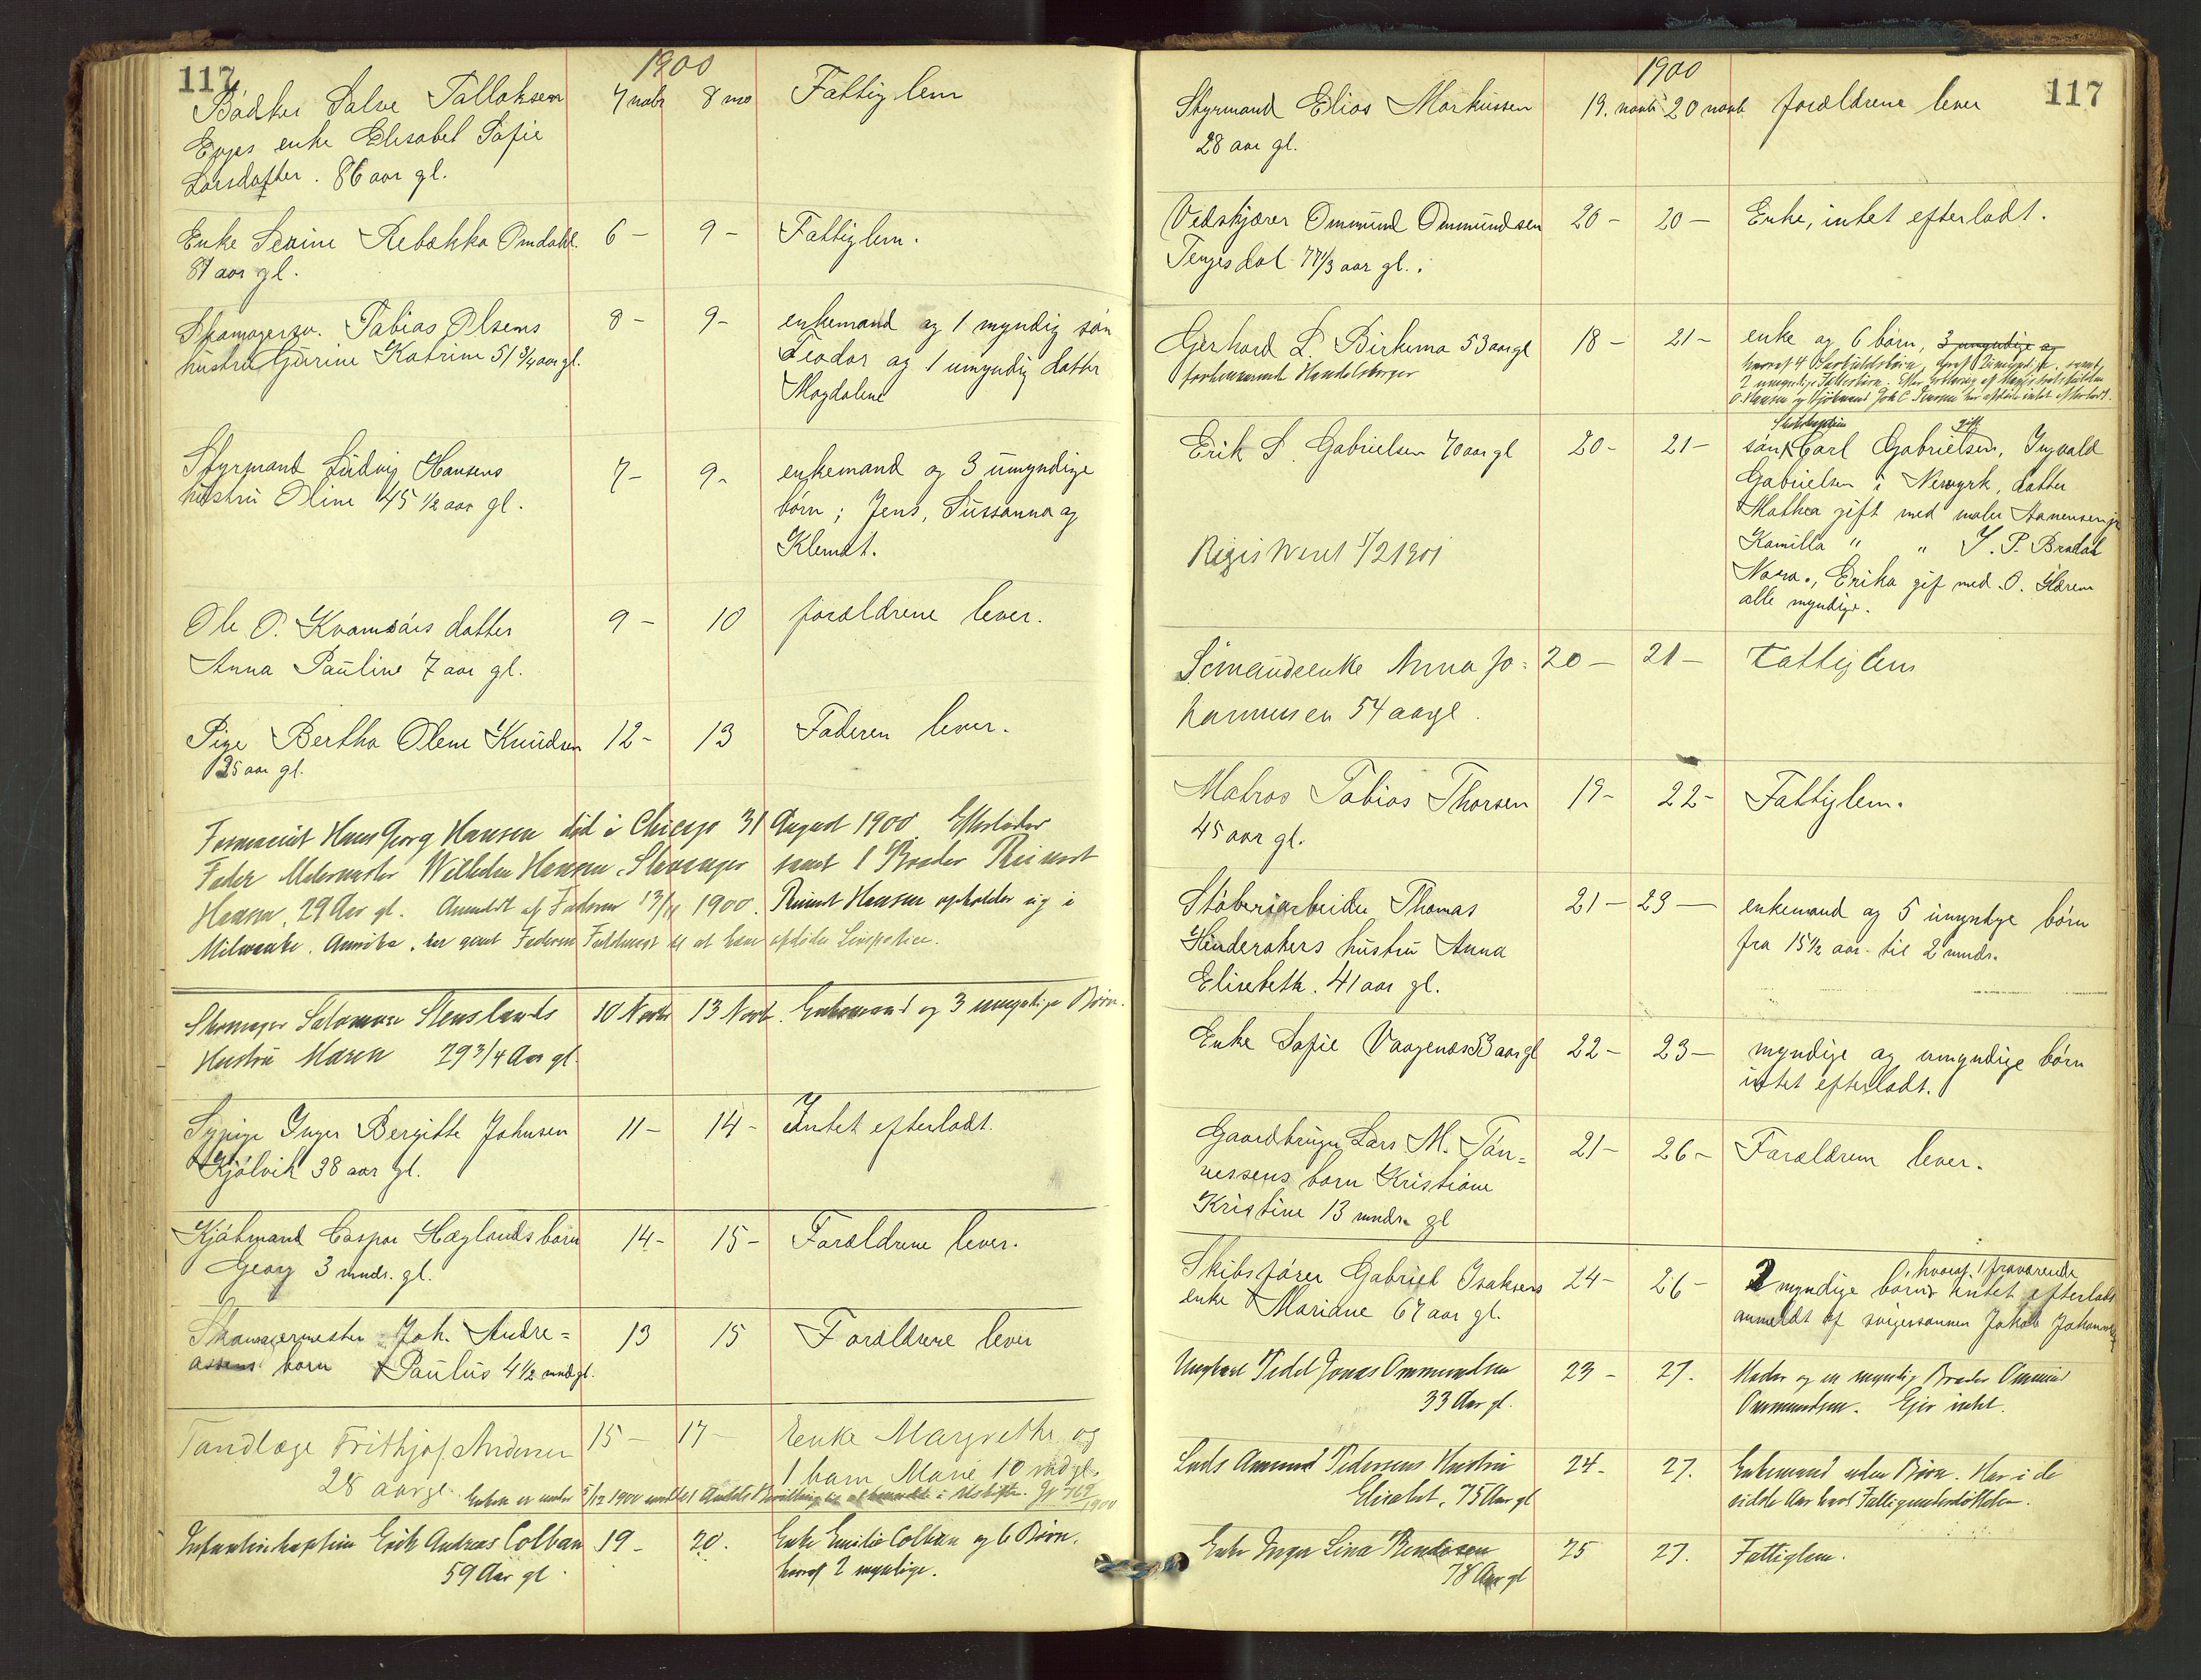 117
1900
Bödker Salve Tallaksen 7 nobr 8 no Fattiglem
Eges enke Elisabet Sofie
Larsdatter. 86 aar gl.
Enke Serine Rebekka Omdahl 6 – 9 – Fattiglem.
87 aar gl.
Skomagersv. Tobias Olsens 8 – 9 – enkemand og 1 myndig søn
hustru Gurine Katrine 51 3/4 aar gl. Teodor og 1 umyndig datter
Magdalene
Styrmand Ludvig Hansens 7 – 9 – enkemand og 3 umyndige
hustru Oline 45 1/2 aar gl. børn; Jens, Sussanna og
Klemat.
Ole O. Kvamsøis datter 9 – 10 forældrene lever.
Anna Pauline 7 aar gl.
Pige Bertha Olene Knudsen 12 – 13 Faderen lever.
35 aar gl.
Farmaceut Hans Georg Hansen død i Chicago 31 August 1900. Efterlader
Fader Malermester Wilhelm Hansen, Stavanger samt 1 Broder Reinert
Hansen, 29 Aar gl. Anmeldt af Faderen 13/11 1900. Reinert Hansen opholder sig i
Milwauke. Amerika.
Skomager Salomon Stenslands 10 Novbr 13 Novb. Enkemand og 3 umyndige Børn.
Hustru Maren 29 3/4 Aar gl.
Sypige Inger Bergitte Johnsen 11 – 14 – Intet efterladt.
Kjølvik 38 aar gl.
Kjøbmand Caspar Høglands barn 14 – 15 – Forældrene lever.
Georg 3 mndr. gl.
Skomagermester Joh. Andre= 13 15 Forældrene lever
assens barn Paulus 4 1/2 mnd gl.
Tandlæge Frithjof Andersen 15 – 17 – Enke Margrethe og
28 aar gl. 1 barn Marie 10 md gl.
Enken er under 5/12 1900 meddelt
Infanterikaptein Erik Andreas Colban 19 – 20. Enke Emilie Colban og 6 Børn,
59 Aar gl. hvoraf 2 myndige.
1900
117
Styrmand Elias Markussen 19. novb 20 novb forældrene lever
28 aar gl.
Vedskjærer Ommund Ommundsen 20 – 20 – Enke, intet efterladt.
Tengesdal 77 1/3 aar gl.
Gerhard L. Birkemo 53 aar gl 18 – 21 – enke og 6 børn, 3 umyndige og
forhenværende Handelsborger hvoraf 4
2 umyndige
O. Hansen og Kjøbmand Joh C. har afdøde intet efterladt.
Skibskaptein gift
Erik S. Gabrielsen 70 aar gl 20 – 21 – søn Carl Gabrielsen, Ingvald
Gabrielsen i Newyrk, datter
Mathea gift med maler Aanensen jr
Registreret 1/2 1901 Kamilla " " J. P. Bradal
Nora., Erika gif med O. Hærem
alle myndige.
Sømandsenke Anna Jo= 20 – 21 – Fattiglem
hannesen 54 aar gl.
Matros Tobias Thorsen 19 – 22 – Fattiglem.
45 aar gl.
Støberiarbeider Thomas 21 – 23 – enkemand og 5 umyndge børn
Hinderakers hustru Anna fra 15 1/2 aar til 2 mndr.
Elisebeth. 41 aar gl.
Enke Sofie Vaagenes 53 aar gl 22 – 23 – myndige og umyndige børn
intet efterladt.
Gaardbruger Lars M. Tøn= 21 – 26 – Forældrene lever.
nessens barn Kristiane
Kristine 13 mndr gl
, hvoraf 1 fraværende
Skibsfører Gabriel Isaksens 24 – 26 – 2 myndige børn intet efterladt
enke Mariane 67 aar gl. anmeldt af svigersønnen Jakob
Ungkarl Peder Jonas Ommundsen 23 – 27. Moder og en myndig Broder Ommund
33 Aar gl. Ommundsen. Ejer intet.
Lods Amund Pedersens Hustru 24 – 27. Enkemand uden Børn. Har i de
Elisabet, 75 Aar gl sidste Aar havt Fattigunderstøttelse.
Enke Inger Lina Bendiksen 25 27. Fattiglem.
78 Aar gl